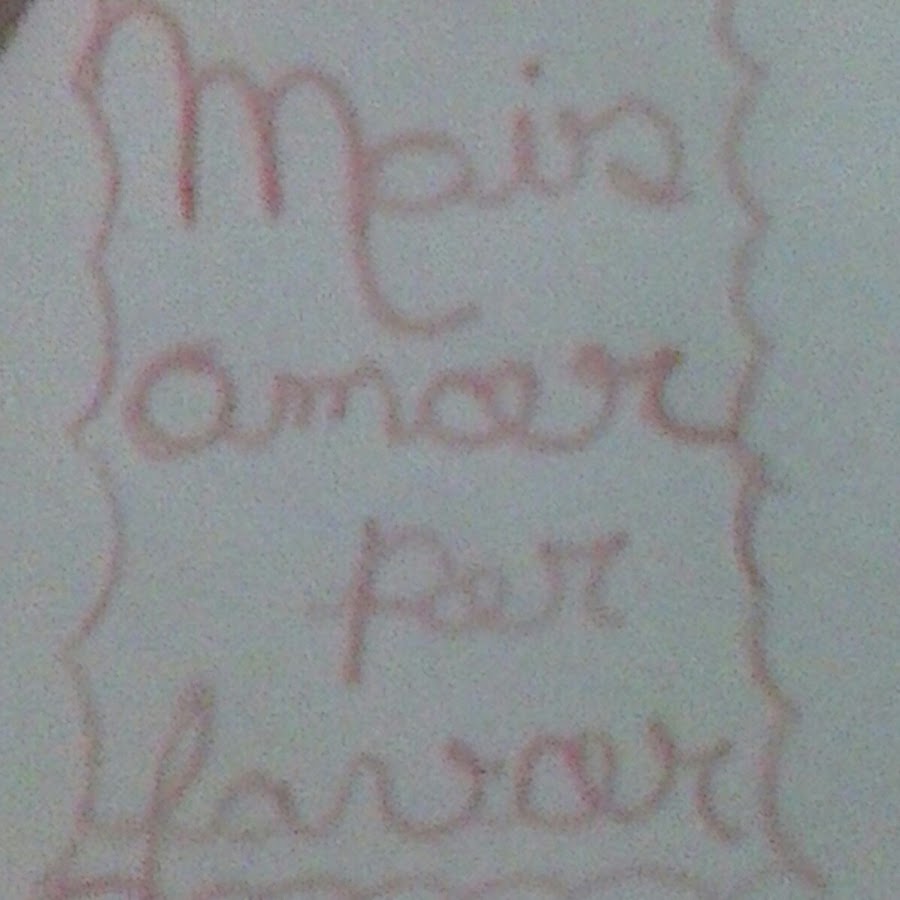 Mais
amor
por
favor